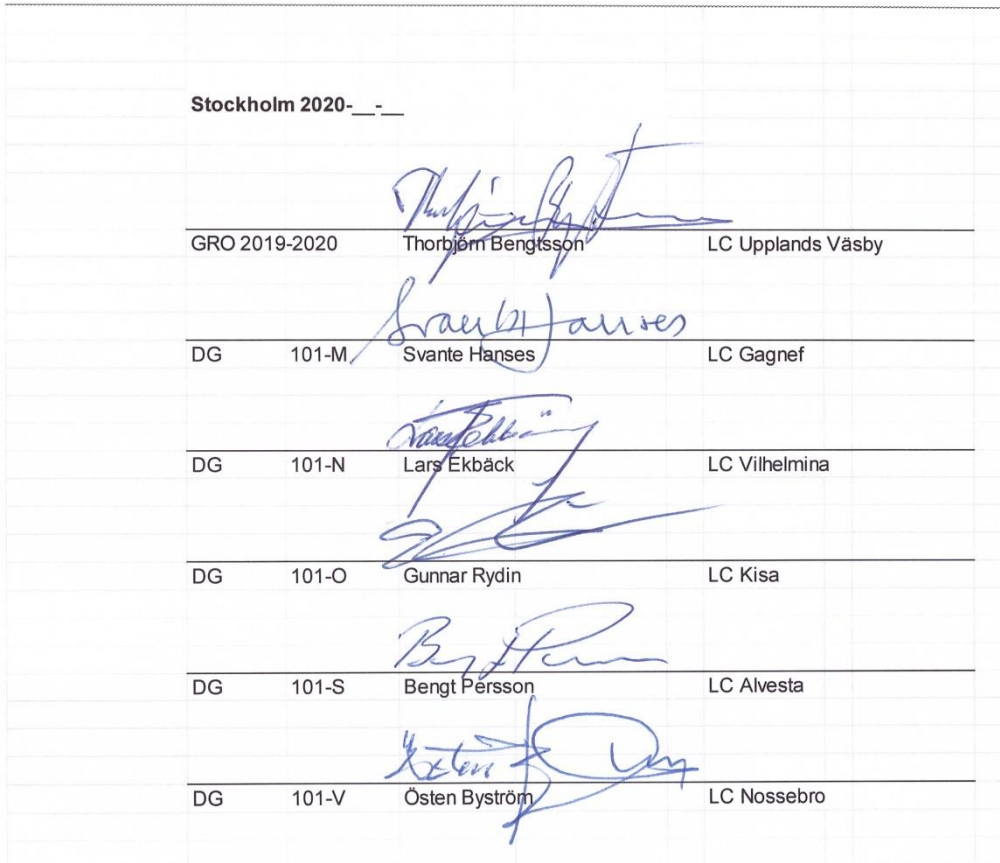 Stockholm 2020-__-__
GRO 2019-2020 Thorbjörn Bengtsson LC Upplands Väsby
Svante Hanses
DG 101-M Svante Hanses LC Gagnef
Lars Ekbäck
DG 101-N Lars Ekbäck LC Vilhelmina
DG 101-O Gunnar Rydin LC Kisa
DG 101-S Bengt Persson LC Alvesta
Östen
DG 101-V Östen Byström LC Nossebro